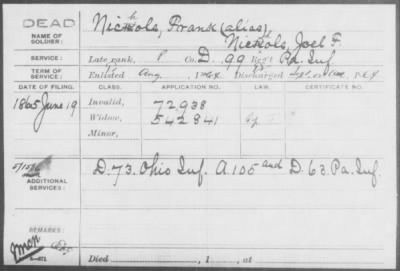 DEAD
Nichols, Frank (alias)
NAME OF SOLDIER:
Nichols, Joel F.
SERVICE: Late rank, P Co. D. 99 Reg't Pa. Inf
TERM OF SERVICE: Enlisted Aug 186 Discharged 186
DATE OF FILING. CLASS. APPLICATION NO. LAW. CERTIFICATE NO.
1865 June 19 Invalid, 72938
Widow, 542841
Minor,
D. 73. Ohio Inf. A 105 and D. 63. Pa. Inf.
ADDITIONAL SERVICES:
REMARKS:
Died , 1 , at